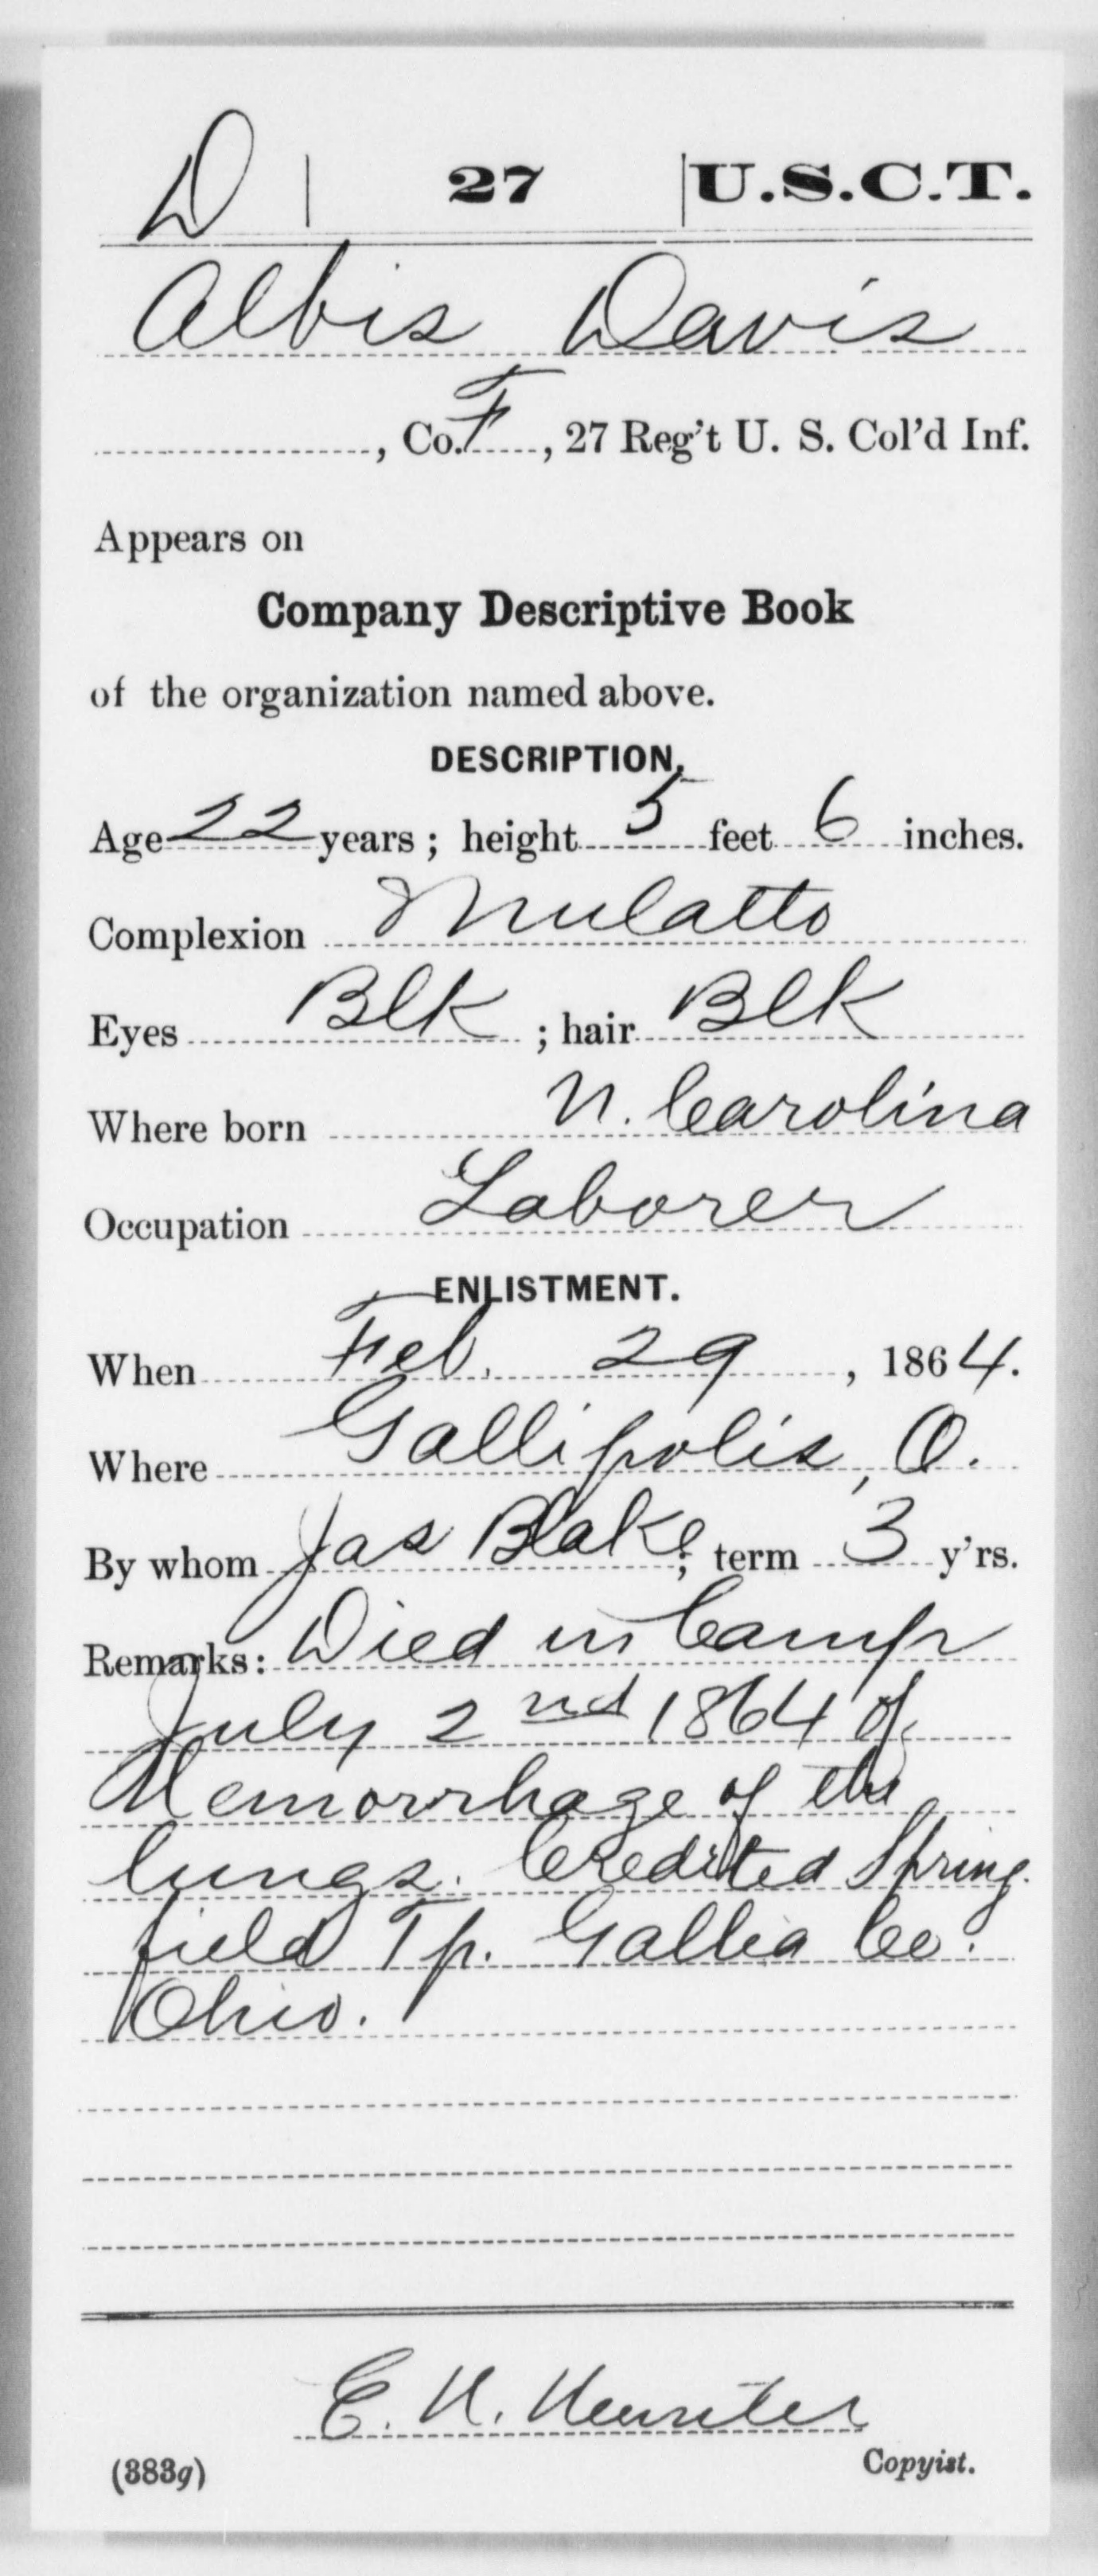 D | 27 | U.S.C.T.
Albis Davis
, Co. F, 27 Reg't U. S. Col'd Inf.
Appears on
Company Descriptive Book
of the organization named above.
DESCRIPTION.
Age 22 years; height 5 feet 6 inches.
Complexion Mulatto
Eyes Blk; hair Blk
Where born N. Carolina
Occupation Laborer
ENLISTMENT.
When Feb. 29, 1864.
Where Gallipolis, O.
By whom Jas Blake; term 3 y'rs.
Remarks: Died in Camp
July 2nd 1864 of
Hemorrhage of the
lungs. Credited Spring-
field Tp. Gallia Co.
Ohio.
(383g)
Copyist.